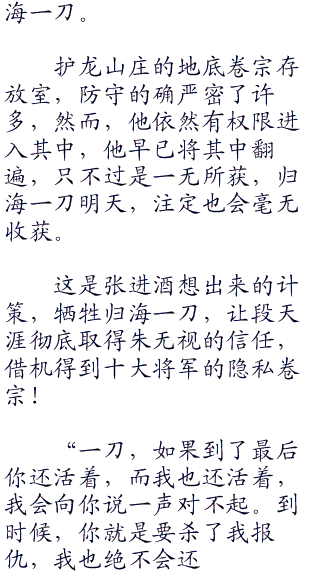 海一刀。
护龙山庄的地底卷宗存
放室，防守的确严密了许
多，然而，他依然有权限进
入其中，他早已将其中翻
遍，只不过是一无所获，归
海一刀明天，注定也会毫无
收获。
这是张进酒想出来的计
策，牺牲归海一刀，让段天
涯彻底取得朱无视的信任，
借机得到十大将军的隐私卷
宗！
“一刀，如果到了最后
你还活着，而我也还活着，
我会向你说一声对不起。到
时候，你就是要杀了我报
仇，我也绝不会还